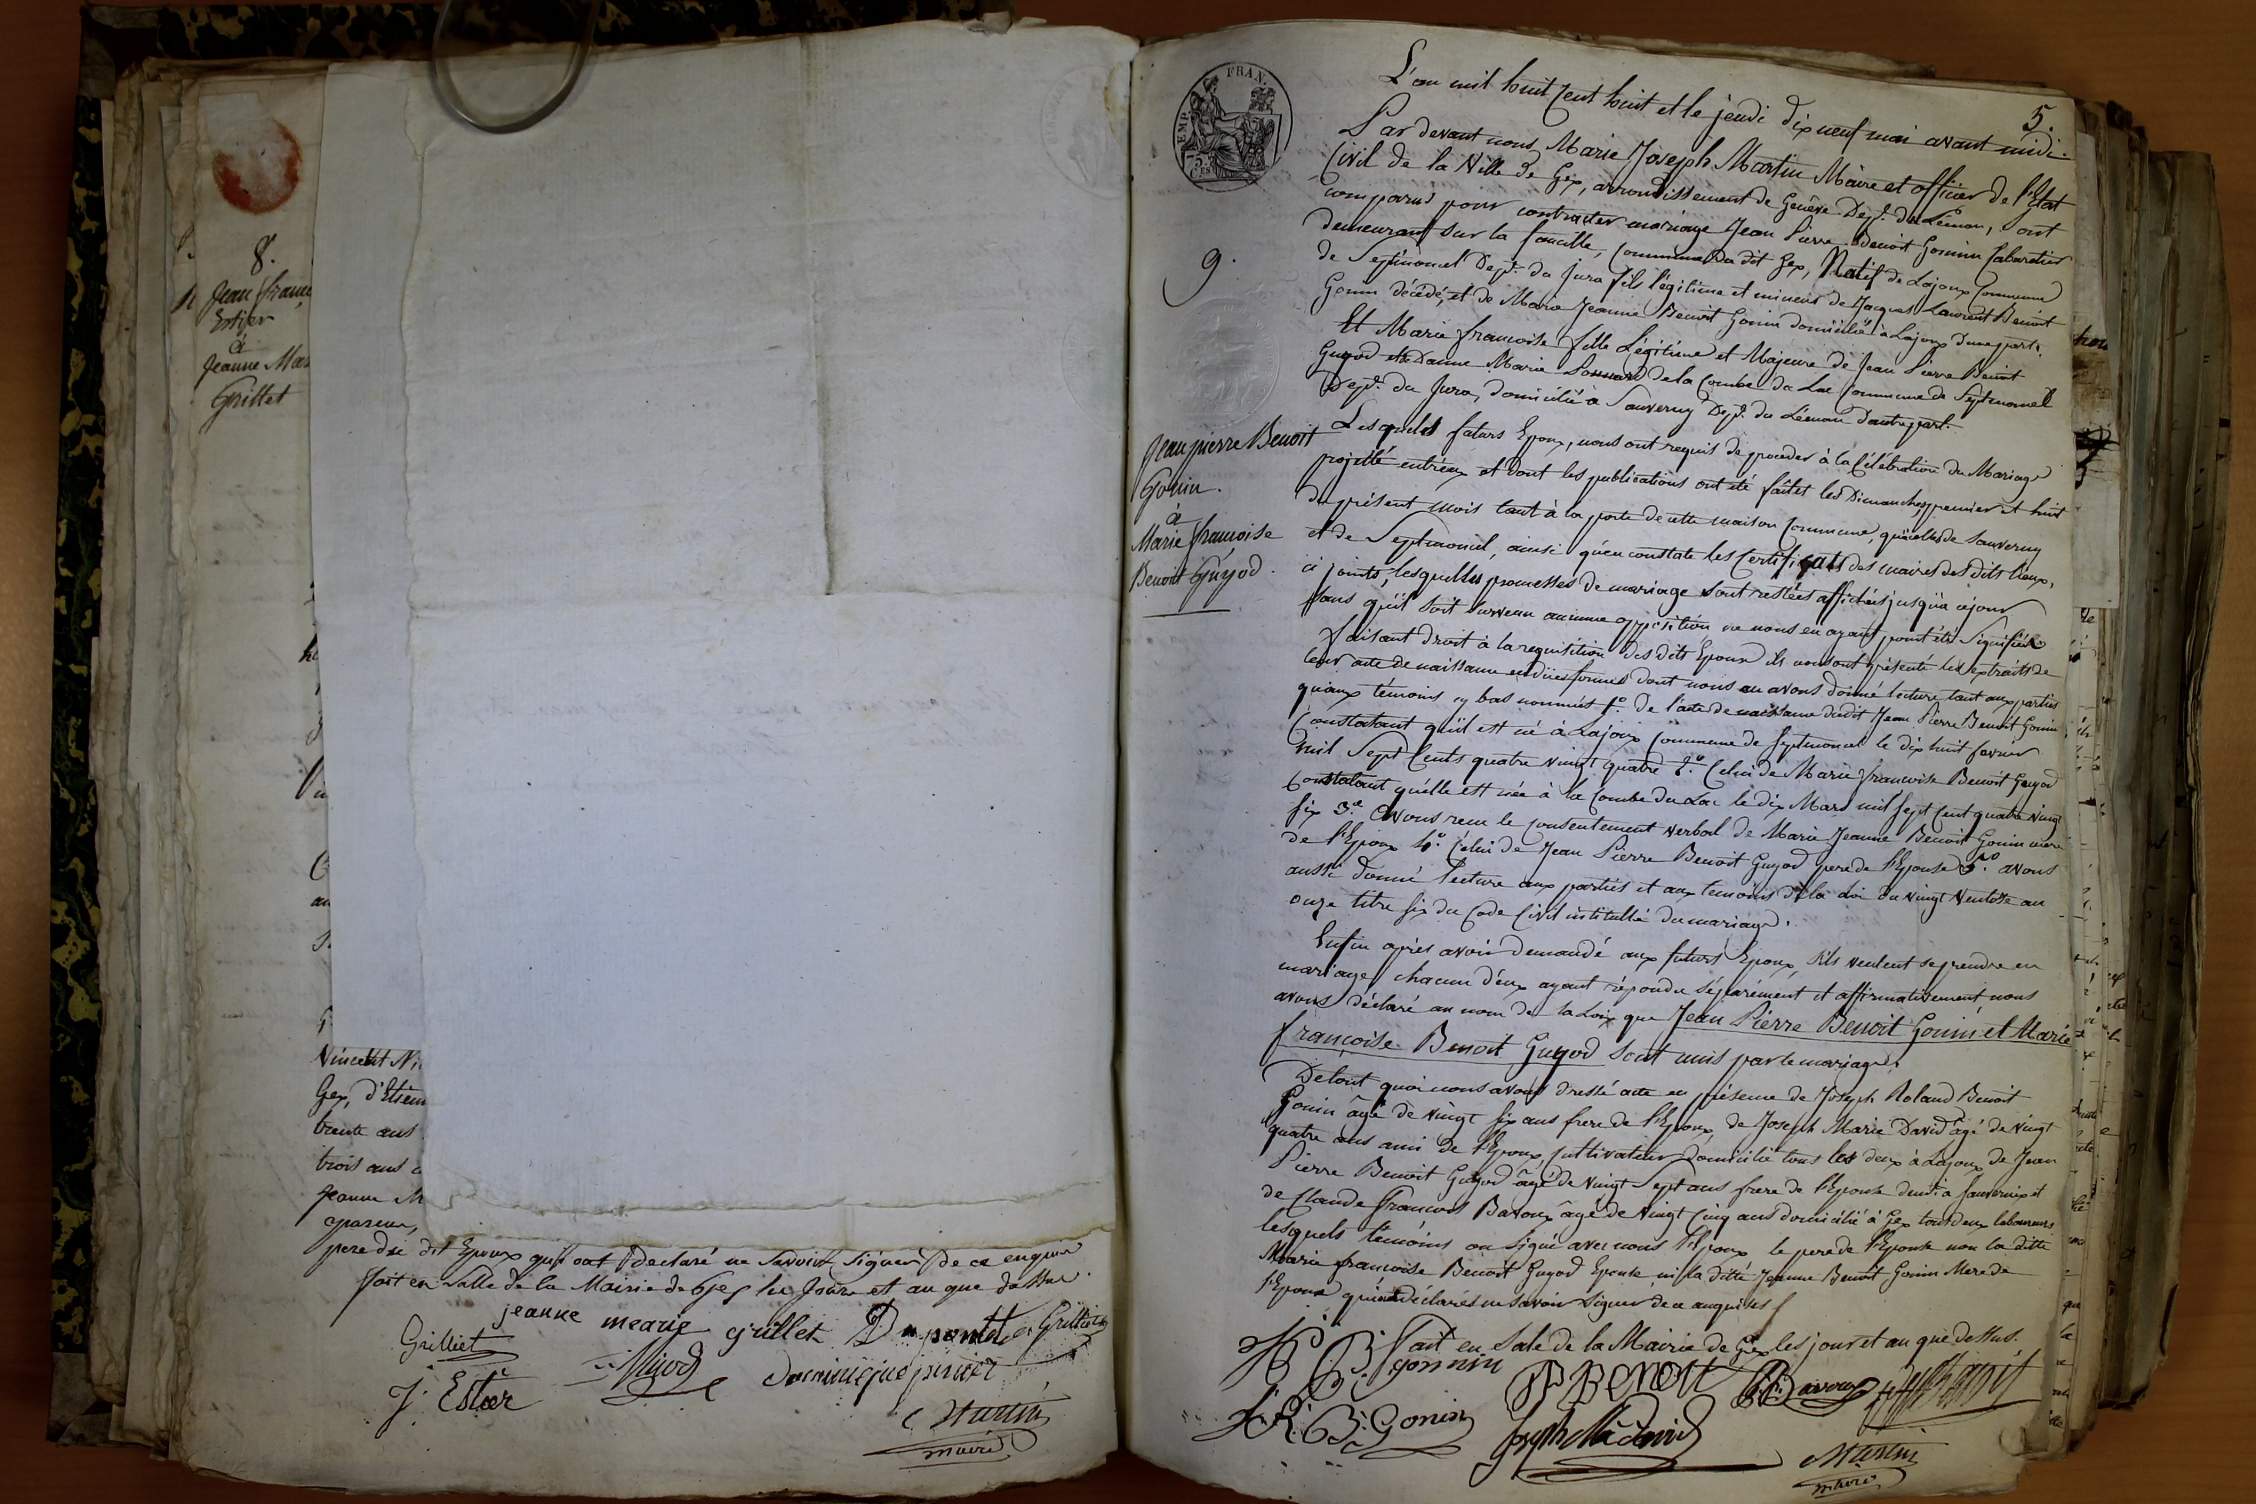 8.
Jean franc
Estier
à
Jeanne Mar
Grillet
Vincent Ni
Gex, d'Etien
trente ans
trois ans
Jeanne M
pere du dit Epoux qui ont declaré ne savoir signer de ce enquis
fait en Salle de la Mairie de Gex les Jour et an que dessus.
jeanne marie grillet Dupontet Grilliet
Grilliet
J. Estier
dominique perrier
Martin
maire
EMP. FRAN.
75
CES
5.
L'an mil huit Cent huit et le jeudi dix neuf mai avant midi.
Par devant nous Marie Joseph Martin Maire et officier de l'Etat
Civil de la Ville de Gex, arrondissement de Genève Dept. du Léman, sont
comparus pour contracter mariage Jean Pierre Benoit Gonin Cabaretier
demeurant sur la faucille, Commune du dit Gex, Natif de Lajoux Commune
de Septmoncel Dept. du Jura fils légitime et mineur de Jacques Laurent Benoit
Gonin décédé, et de Marie Jeanne Benoit Gonin domiciliée à Lajoux d'une part.
Et Marie francoise fille Légitime et Majeure de Jean Pierre Benoit
Guyod et de Danne Marie de la Combe du Lac Commune de Septmoncel
Dept. du Jura, domiciliée à Sauverny Dept. du Léman d'autre part.
9.
Jean pierre Benoit
Gonin.
à
Marie francoise
Benoit Guyod.
Lesquels futurs Epoux, nous ont requis de proceder à la Célébration du Mariage
projetté entr'eux et dont les publications ont été faites les Dimanches premier et huit
du présent mois tant à la porte de cette maison Commune, qu'à celles de Sauverny
et de Septmoncel, ainsi qu'en constate les Certificats des maires des dits lieux,
ci joints, lesquelles promesses de mariage sont restées affichées jusqu'à ce jour
sans qu'il soit survenu aucunne opposition ne nous en ayant point été Signifiée
faisant droit à la requisition des dits Epoux ils nous ont présenté les extraits de
leur acte de naissance en dües formes dont nous en avons donné lecture tant aux parties
qu'aux témoins cy bas nommés 1.° De l'acte de naissance dudit Jean Pierre Benoit Gonin
Constatant qu'il est né à Lajoux Commune de Septmoncel le dix huit fevrier
mil Sept Cents quatre vingt quatre 2.° Celui de Marie francoise Benoit Guyod
Constatant qu'elle est née à la Combe du Lac le dix Mars mil sept Cent quatre vingt
six 3.° Avons reçu le consentement verbal de Marie Jeanne Benoit Gonin mere
de l'Epoux 4.° Celui de Jean Pierre Benoit Guyod pere de l'Epouse 5.° avons
aussi donné lecture aux parties et aux temoins de la loi du vingt Ventose an
onze titre six du Code Civil intitullé du mariage.
Enfin après avoir demandé aux futurs Epoux, s'ils veulent se prendre en
mariage, chacun d'eux ayant répondu séparément et affirmativement nous
avons déclaré au nom de la Loix que Jean Pierre Benoit Gonin et Marie
francoise Benoit Guyod sont unis par le mariage.
De tout quoi nous avons dressé acte en présence de Joseph Roland Benoit
Gonin âgé de vingt six ans frere de l'Epoux, de Joseph Marie David âgé de vingt
quatre ans ami de l'Epoux, Cultivateur domicilié tous les deux à Lajoux de Jean
Pierre Benoit Guyod âgé de vingt Sept ans frere de l'Epouse demt. à Sauvernix et
de Claude francois Bavoux âgé de vingt Cinq ans domicilié à Gex tous deux laboureurs
lesquels temoins on signé avec nous l'Epoux le pere de l'Epouse non la ditte
Marie francoise Benoit Guyod Epouse, ni la ditte Jeanne Benoit Gonin Mere de
l'Epoux qui ont declarés ne savoir signer de ce enquises
fait en Sale de la Mairie de Gex les jour et an que dessus.
B. gonnin
J P BENOIT
Bavoux
J. R. B. Gonin
Joseph Mie david
Martin
maire